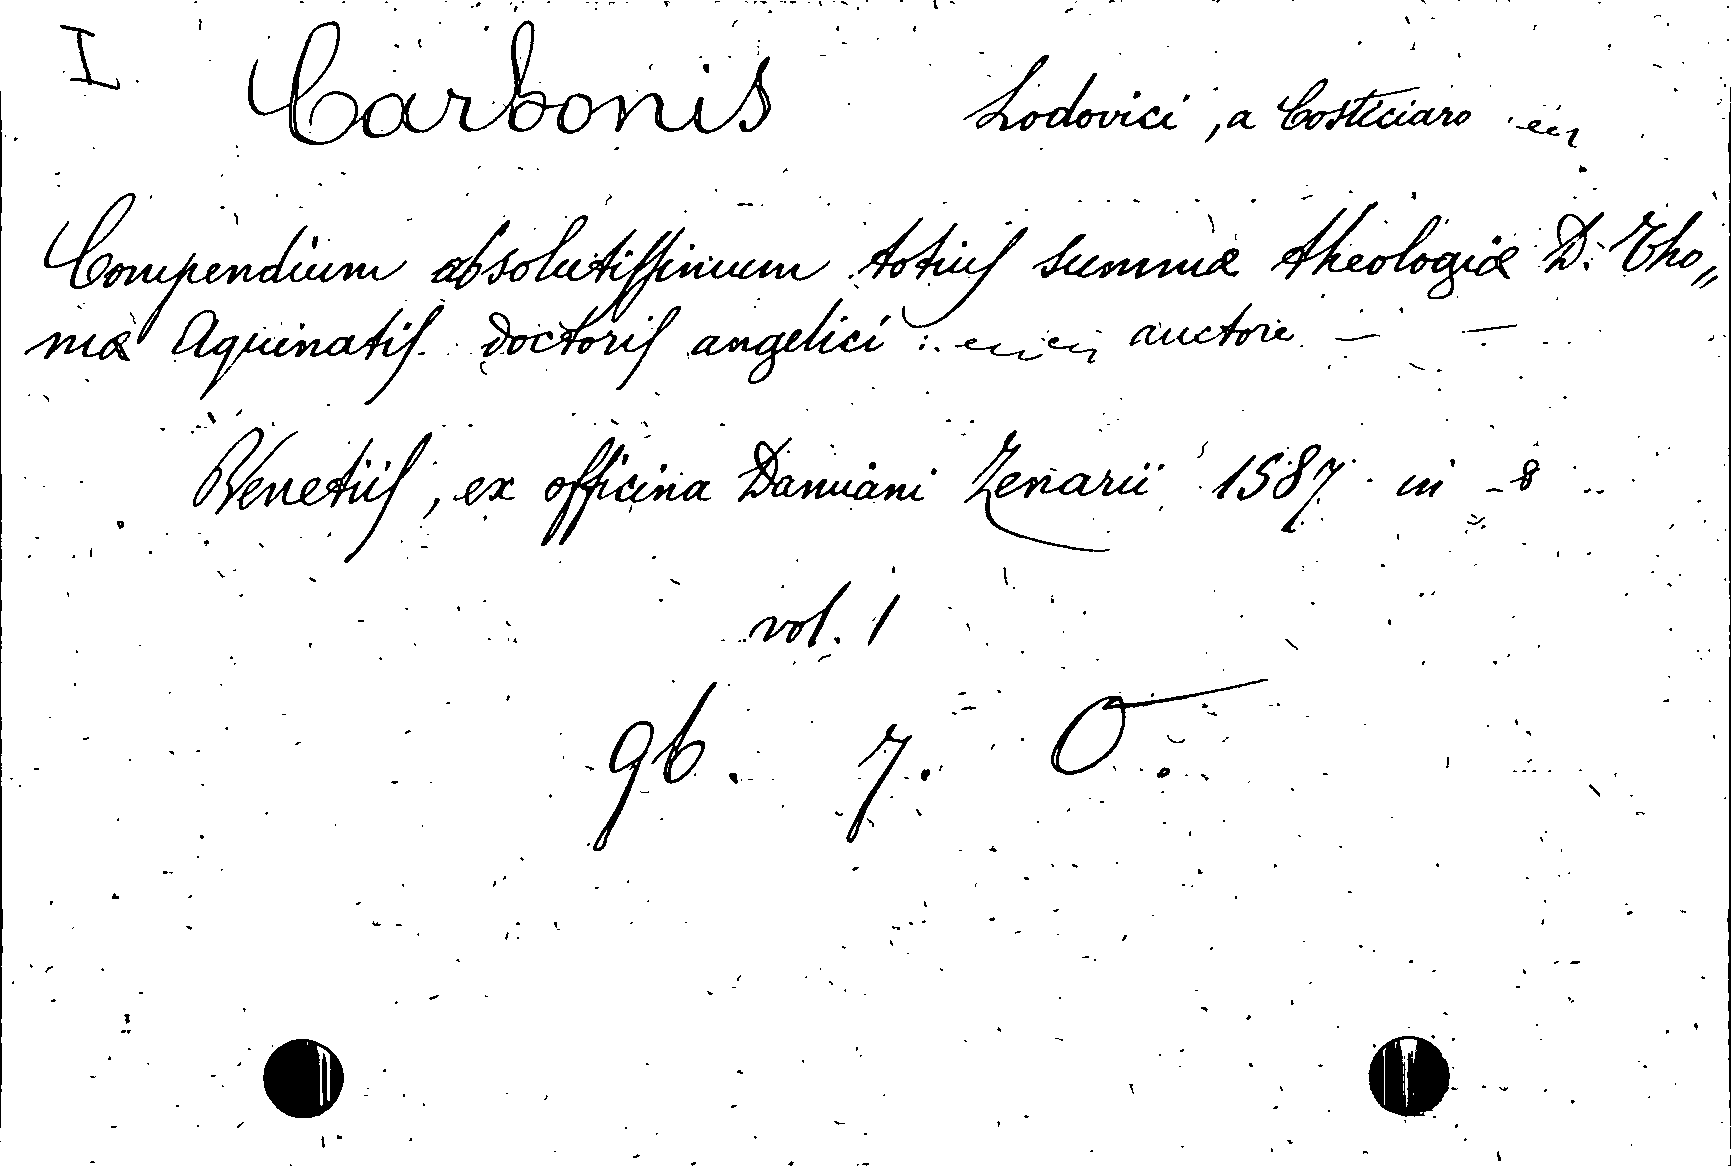 I Carbonis Lodovici, a Costiciaro
Compendium absolutissimum totius summæ theologiæ D. Tho„
mæ Aquinatis doctoris angelici : auctore — —
Venetiis, ex officina Damiani Zenarii 1587 in - 8
vol. 1
96. 7. O.